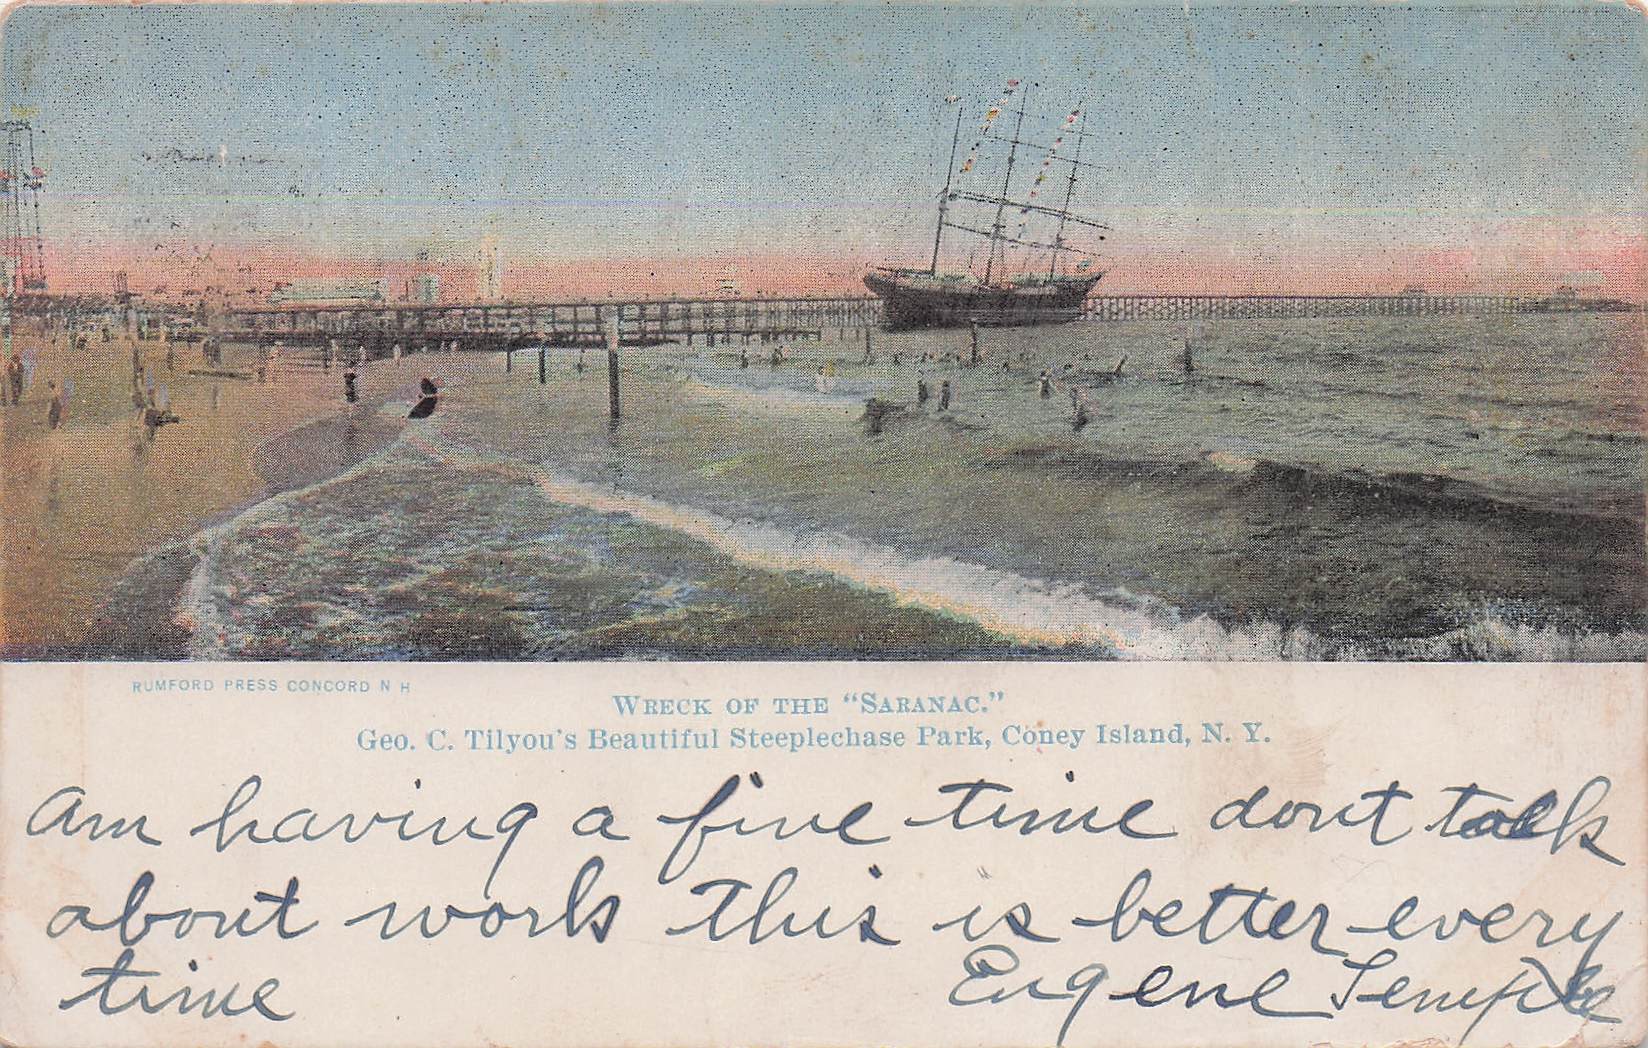 RUMFORD PRESS CONCORD N H
WRECK OF THE "SARANAC."
Geo. C. Tilyou's Beautiful Steeplechase Park, Coney Island, N. Y.
Am having a fine time dont talk
about work This is better every
time Eugene Temple